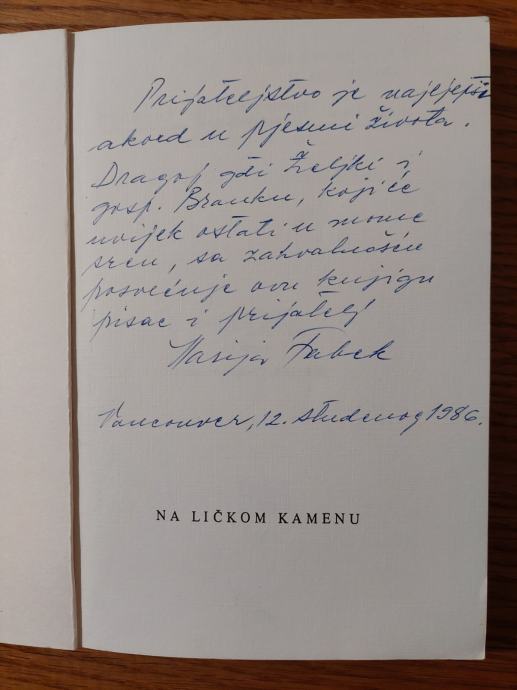 Prijateljstvo je najljepši
akord u pjesmi života.
Dragoj gđi Željki i
gosp. Branku, koji će
uvijek ostati u mome
srcu, sa zahvalnošću
posvećuje ovu knjigu
pisac i prijatelj
Marija Fabek
Vancouver, 12. studenog 1986.
NA LIČKOM KAMENU